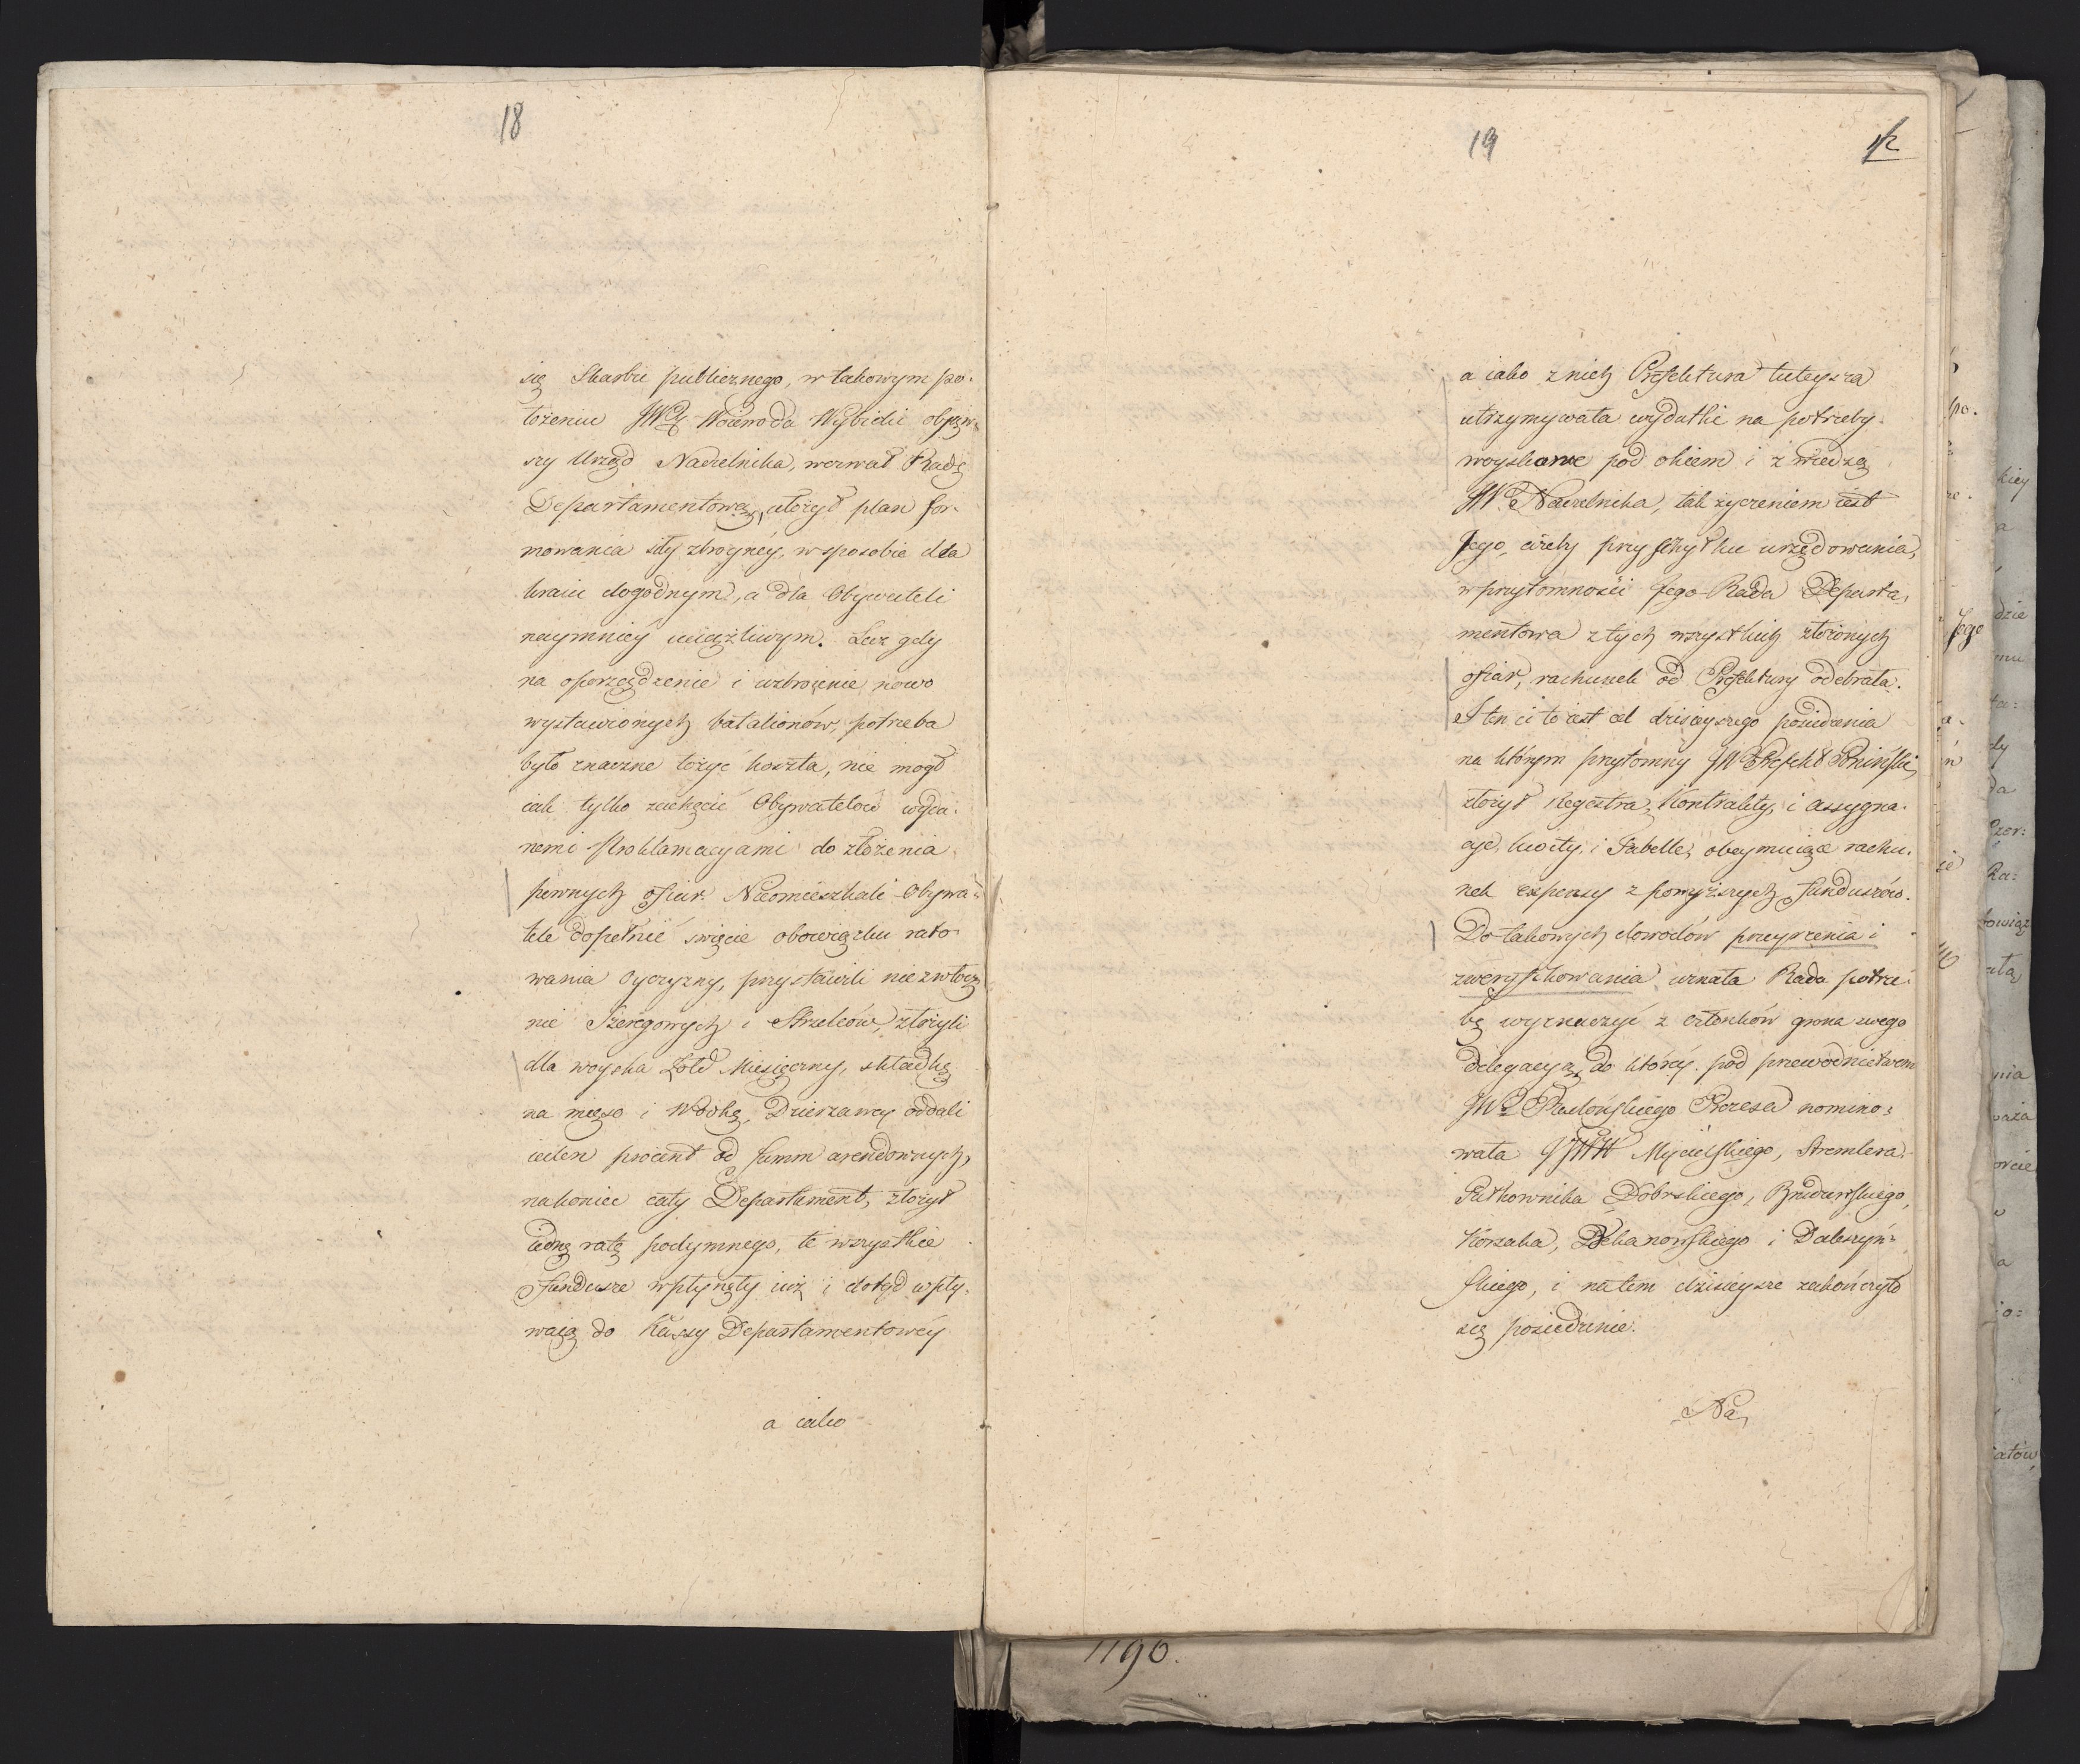 18
się Skarbu publicznego, w takowym po-
łożeniu JW Woiewoda Wybicki obiąw-
szy Urząd Naczelnika, wezwał Radę
Departamentową, ułożył plan for-
mowania siły zbroynéy, w sposobie dla
kraiu dogodnym, a dla Obywateli
naymniéy uciążliwym. Lecz gdy
na oporządzenie i uzbroienie nowo
wystawionych batalionów, potrzeba
było znaczne łożyć koszta, nie mogł
iak tylko zachęcić Obywatelów wyda-
nemi Proklamacyami do złożenia
pewnych ofiar. Nieomieszkali Obywa-
tele dopełnić święcie obowiązku rato-
wania Oyczyzny, przystawili niezwłocz-
nie Szeregowych i Strzelców, złożyli
dla woyska Żołd Miesięczny, składkę
na mięso i Wódkę, Dzierzawcy oddali
ieden procent od summ arendownych,
nakoniec cały Departament, złożył
iedną ratę podymnego, te wszystkie
Fundusze wpłynęły iuż i dotąd wpły-
waią do Kassy Departamentowéy
a iako
19
12
a iako z nich Prefektura tuteysza
utrzymywała wydatki na potrzeby
woyskowe pod okiem i z wiedzą
JW. Naczelnika, tak życzeniem iest
Jego, ażeby przy schyłku urzędowania,
w przytomności Jego Rada Departa-
mentowa z tych wszystkich złożonych
ofiar, rachunek od Prefektury odebrała.
I ten ci to iest cel dzisieyszego posiedzenia
na którym przytomny JW Prefekt Poniński,
złożył Regestra, Kontrakty, i assygna-
cye, kwity, i Tabelle, obeymuiące rachu-
nek expensy z powyższych funduszów.
Do takowych dowodów przeyrzenia i
zweryfikowania uznała Rada potrze-
bę wyznaczyć z członków grona swego
delegacyą, do któréy pod przewodnictwem
JW Prezesa nomino-
wała JJWW Mycielskiego, Stremlera
Pułkownika Dobrskiego,
Korzaka, i
skiego, i na tem dzisieysze zakończyło
się posiedzenie.
Na
1190.
Jego